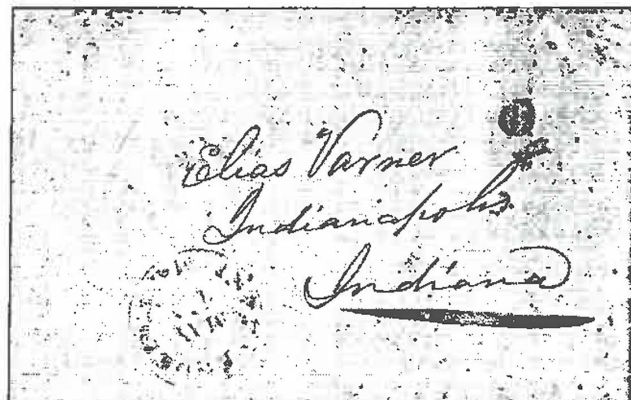 Elias Varner
Indianapolis
Indiana